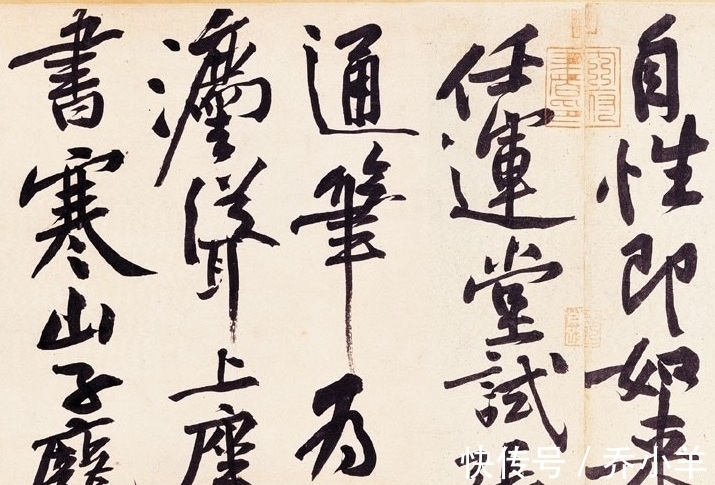 自性即如來
任運堂試
通筆為
灋聳上座
書寒山子龐
快传号 / 乔小羊